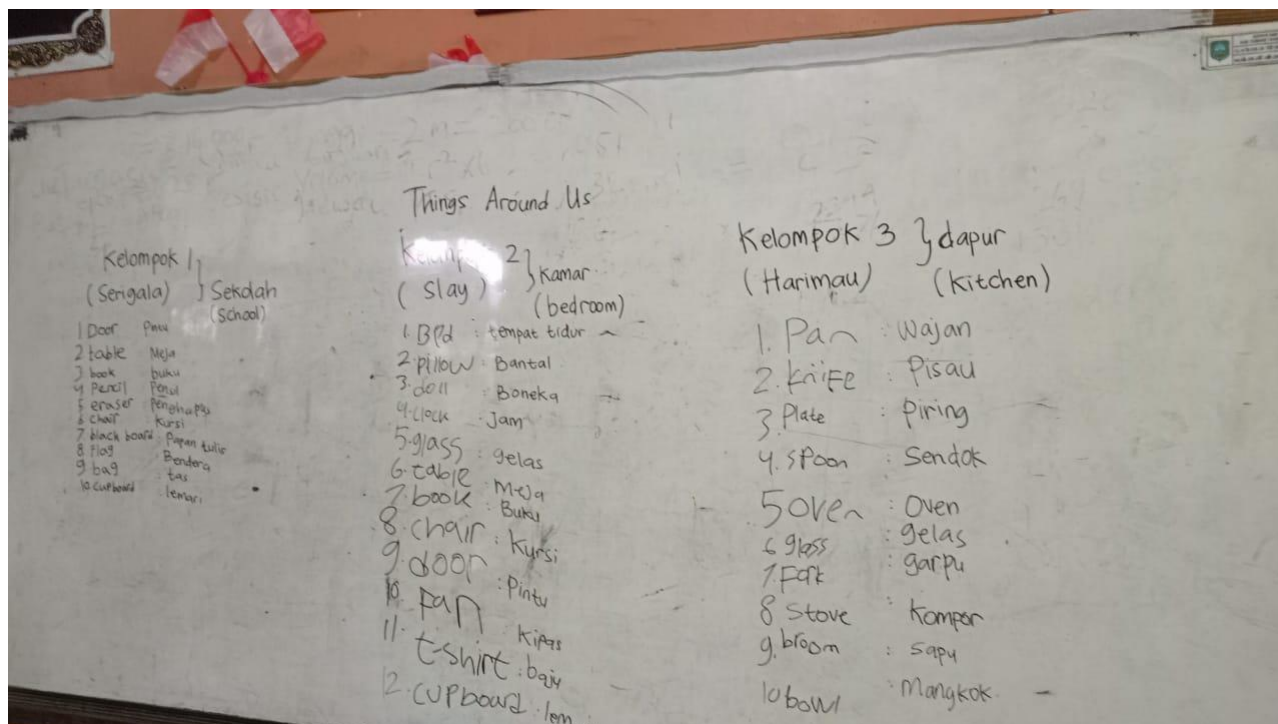 Things Around Us
Kelompok 1 } Sekolah
(Serigala) (School)
1 Door
2 table Meja
3 book buku
4 Pencil Pensil
5 eraser Penghapus
6 chair Kursi
7 black board : Papan tulis
8 Flag : Bendera
9 bag : tas
10 cupboard : lemari
Kelompok 2 } Kamar
( Slay ) (bedroom)
1. Bed : tempat tidur
2. pillow : Bantal
3. doll : Boneka
4. clock : Jam
5. glass : gelas
6. table : Meja
7. book : Buku
8. chair : Kursi
9. door : Pintu
10. Fan Kipas
11. t-shirt : baju
12. cupboard : lem
Kelompok 3 } dapur
(Harimau) (Kitchen)
1. Pan : Wajan
2. knife : Pisau
3. Plate : Piring
4. Spoon : Sendok
5 Oven : Oven
6 glass : gelas
7. Fork : garpu
8 Stove : Kompor
9. broom : Sapu
10 bowl : Mangkok